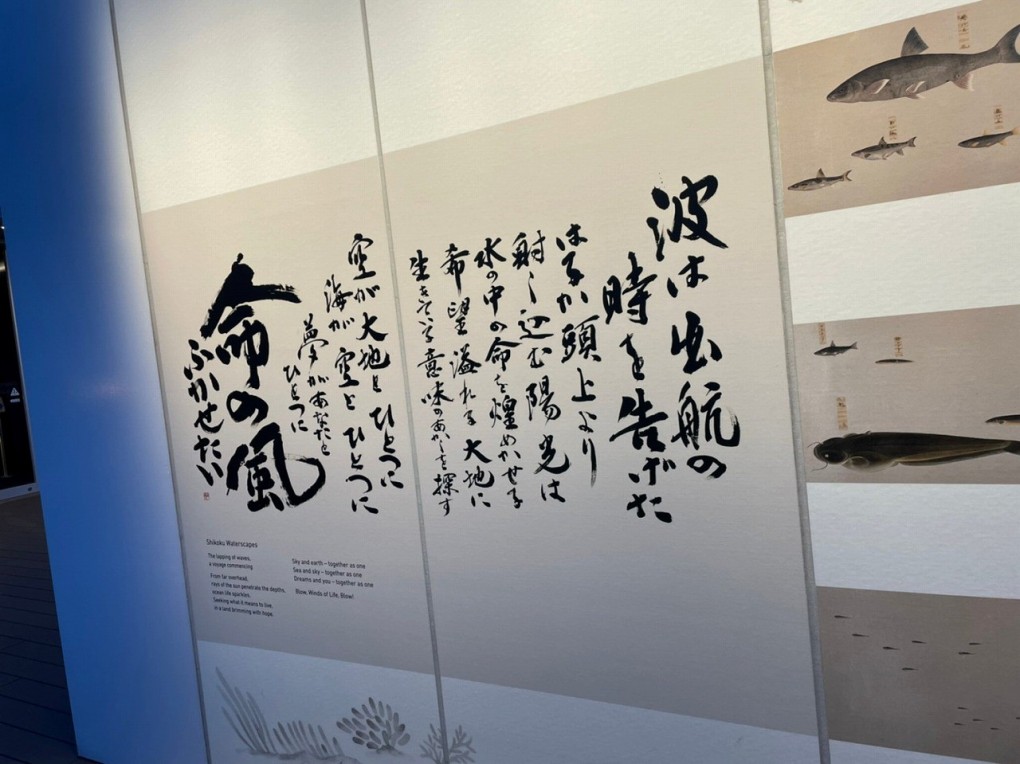 波は出航の
時を告げた
はるか頭上より
射し込む陽光は
水の中の命を煌めかせる
希望溢れる大地に
生きている意味のあかしを探す
空が大地とひとつに
海が空とひとつに
夢があなたと
ひとつに
命の風
ふかせたい
Shikoku Waterscapes
The lapping of waves,
a voyage commencing
From far overhead,
rays of the sun penetrate the depths,
ocean life sparkles.
Seeking what it means to live,
in a land brimming with hope.
Sky and earth – together as one
Sea and sky – together as one
Dreams and you – together as one
Blow, Winds of Life, Blow!